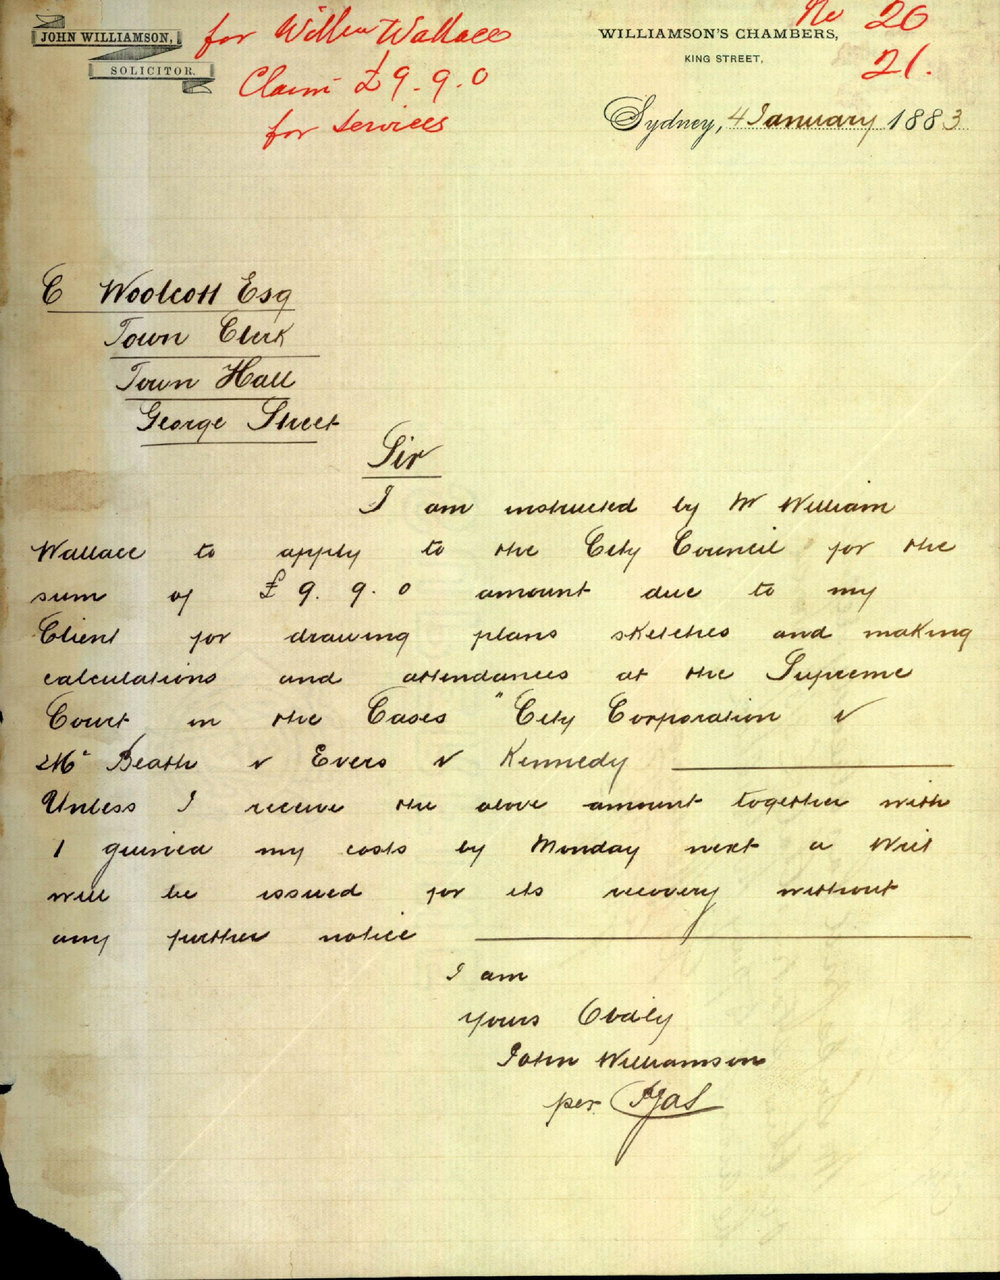 JOHN WILLIAMSON,
SOLICITOR.
for Willm Wallace
Claim £9.9.0
for services
No 20
21.
WILLIAMSON'S CHAMBERS,
KING STREET,
Sydney, 4 January 1883
C Woolcott Esq
Town Clerk
Town Hall
George Street
Sir
I am instructed by Mr William
Wallace to apply to the City Council for the
sum of £9.9.0 amount due to my
Client for drawing plans sketches and making
calculations and attendances at the Supreme
Court in the Cases "City Corporation v
Mc Beath v Evers v Kennedy
Unless I receive the above amount together with
1 guinea my costs by Monday next a Writ
will be issued for its recovery without
any further notice
I am
yours Obdly
John Williamson
per